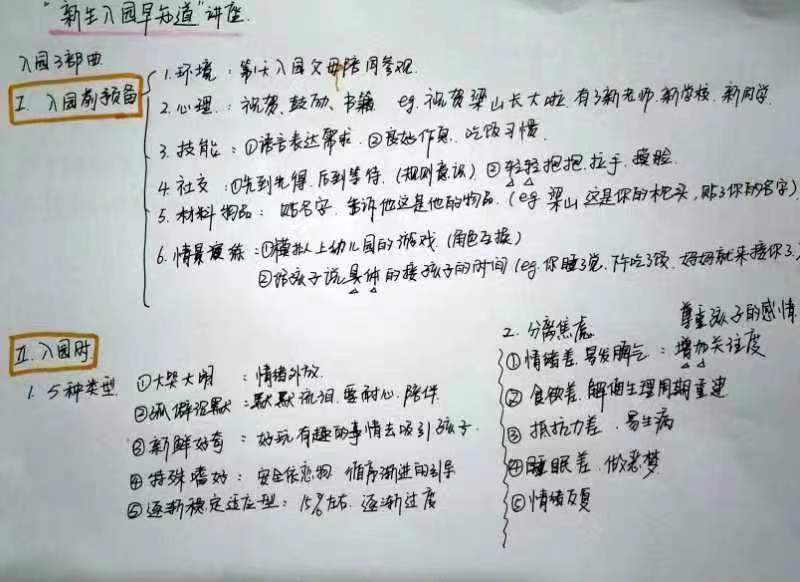 “新生入园早知道”讲座.
入园3部曲
I. 入园前预备
1. 环境：第1天入园父母陪同参观.
2. 心理：祝贺、鼓励、书籍 eg. 祝贺梁山长大啦. 有了新老师. 新学校. 新同学.
3. 技能：①语言表达需求. ②良好作息. 吃饭习惯.
4. 社交：①先到先得. 后到等待.（规则意识）②轻轻抱抱. 拉手. 摸脸.
5. 材料物品：贴名字. 告诉他这是他的物品.（eg. 梁山这是你的枕头，贴了你的名字）
6. 情景演练：①模拟上幼儿园的游戏.（角色互换）
②给孩子说具体的接孩子的时间（eg. 你睡了觉. 下午吃了饭. 妈妈就来接你了.）
II. 入园时
1. 5种类型
①大哭大闹：情绪外放.
②孤僻沉默：默默流泪. 要耐心. 陪伴.
③新鲜好奇：好玩有趣的事情去吸引孩子.
④特殊嗜好：安全依恋物. 循序渐进的引导
⑤逐渐稳定适应型：15%左右. 逐渐过度
2. 分离焦虑
尊重孩子的感情
①情绪差. 易发脾气：增加关注度
②食欲差. 解便生理周期重建
③抵抗力差. 易生病
④睡眠差. 做恶梦
⑤情绪反复